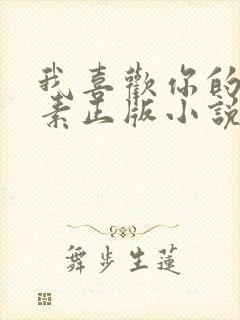 我喜歡你的
素正版小說
舞步生蓮